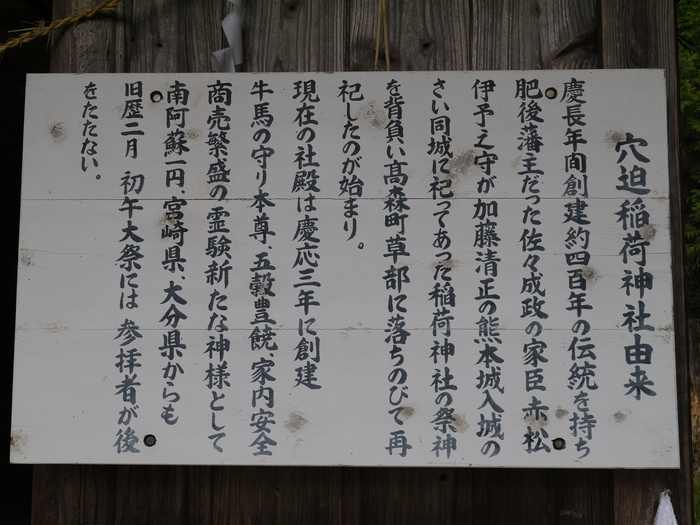 穴迫稲荷神社由来
慶長年間創建約四百年の伝統を持ち
肥後藩主だった佐々成政の家臣赤松
伊予之守が加藤清正の熊本城入城の
さい同城に祀ってあった稲荷神社の祭神
を背負い高森町草部に落ちのびて再
祀したのが始まり。
現在の社殿は慶応三年に創建
牛馬の守り本尊、五穀豊饒、家内安全
商売繁盛の霊験新たな神様として
南阿蘇一円、宮崎県、大分県からも
旧歴二月 初午大祭には 参拝者が後
をたたない。